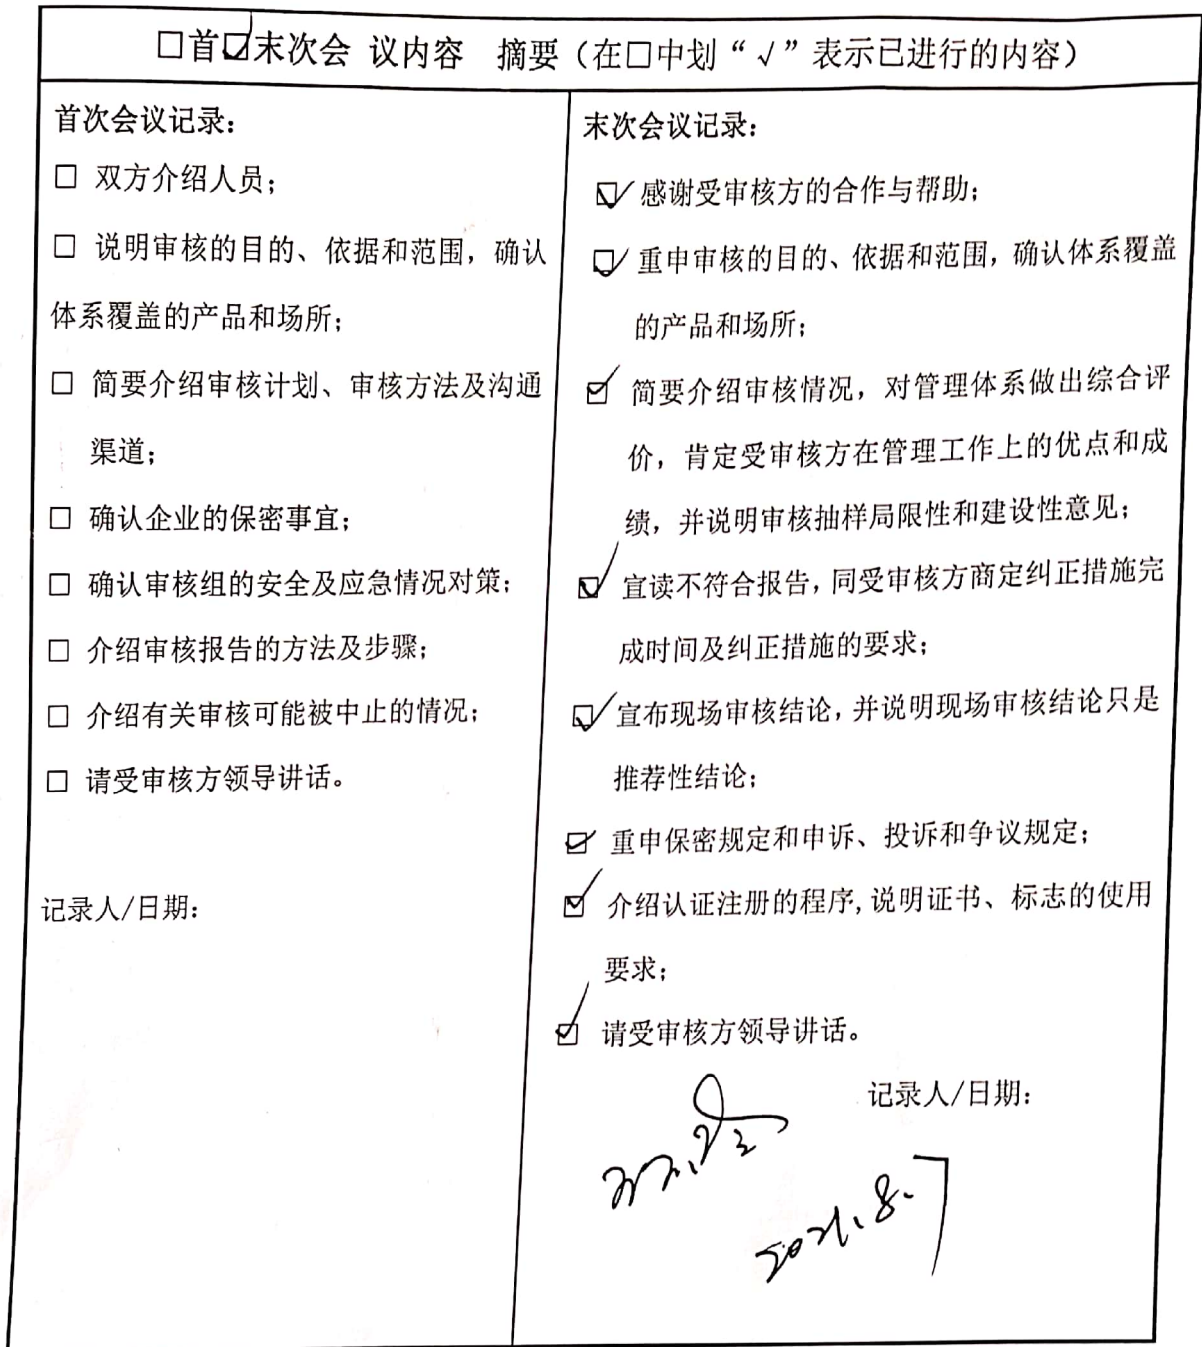 □首☑末次会 议内容 摘要（在□中划“√”表示已进行的内容）
首次会议记录：
□ 双方介绍人员；
□ 说明审核的目的、依据和范围，确认
体系覆盖的产品和场所；
□ 简要介绍审核计划、审核方法及沟通
渠道；
□ 确认企业的保密事宜；
□ 确认审核组的安全及应急情况对策；
□ 介绍审核报告的方法及步骤；
□ 介绍有关审核可能被中止的情况；
□ 请受审核方领导讲话。
记录人/日期：
末次会议记录：
☑ 感谢受审核方的合作与帮助；
☑ 重申审核的目的、依据和范围，确认体系覆盖
的产品和场所；
☑ 简要介绍审核情况，对管理体系做出综合评
价，肯定受审核方在管理工作上的优点和成
绩，并说明审核抽样局限性和建设性意见；
☑ 宣读不符合报告，同受审核方商定纠正措施完
成时间及纠正措施的要求；
☑ 宣布现场审核结论，并说明现场审核结论只是
推荐性结论；
☑ 重申保密规定和申诉、投诉和争议规定；
☑ 介绍认证注册的程序,说明证书、标志的使用
要求；
☑ 请受审核方领导讲话。
记录人/日期：
2021.8.7